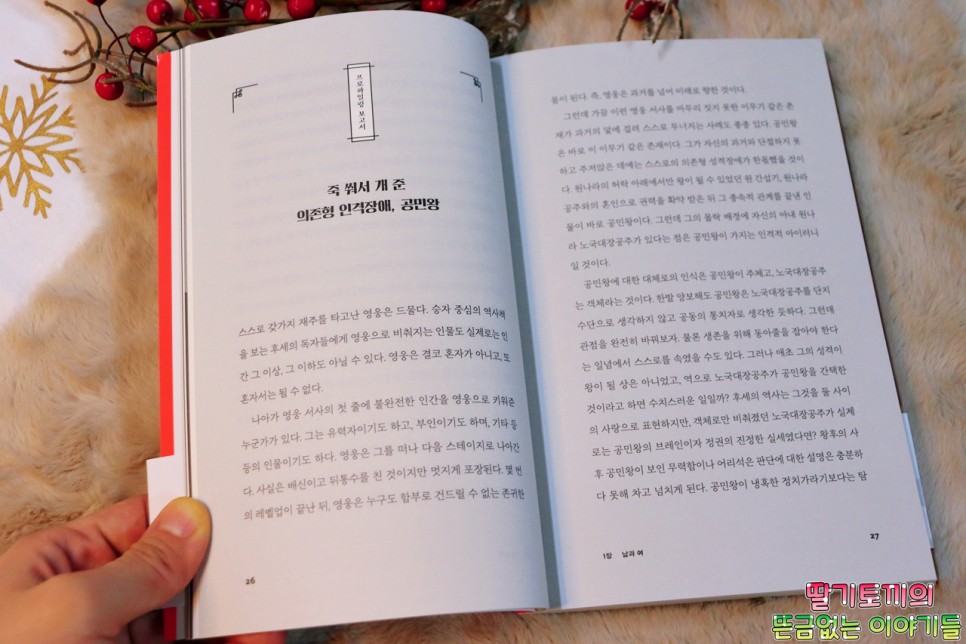 프로파일링 보고서
죽 쒀서 개 준
의존형 인격장애, 공민왕
스스로 갖가지 재주를 타고난 영웅은 드물다. 승자 중심의 역사책
을 보는 후세의 독자들에게 영웅으로 비춰지는 인물도 실제로는 인
간 그 이상, 그 이하도 아닐 수 있다. 영웅은 결코 혼자가 아니고, 또
혼자서는 될 수 없다.
나아가 영웅 서사의 첫 줄에 불완전한 인간을 영웅으로 키워준
누군가가 있다. 그는 유력자이기도 하고, 부인이기도 하며, 기타 등
등의 인물이기도 하다. 영웅은 그를 떠나 다음 스테이지로 나아간
다. 사실은 배신이고 뒤통수를 친 것이지만 멋지게 포장된다. 몇 번
의 레벨업이 끝난 뒤, 영웅은 누구도 함부로 건드릴 수 없는 존귀한
26
물이 된다. 즉, 영웅은 과거를 넘어 미래로 향한 것이다.
그런데 가끔 이런 영웅 서사를 마무리 짓지 못한 이무기 같은 존
재가 과거의 덫에 걸려 스스로 무너지는 사례도 종종 있다. 공민왕
은 바로 이 이무기 같은 존재이다. 그가 자신의 과거와 단절하지 못
하고 주저앉은 데에는 스스로의 의존형 성격장애가 한몫했을 것이
다. 원나라의 허락 아래에서만 왕이 될 수 있었던 원 간섭기, 원나라
공주와의 혼인으로 권력을 확약 받은 뒤 그 종속적 관계를 끝낸 인
물이 바로 공민왕이다. 그런데 그의 몰락 배경에 자신의 아내 원나
라 노국대장공주가 있다는 점은 공민왕이 가지는 인격적 아이러니
일 것이다.
공민왕에 대한 대체로의 인식은 공민왕이 주체고, 노국대장공주
는 객체라는 것이다. 한발 양보해도 공민왕은 노국대장공주를 단지
수단으로 생각하지 않고 공동의 통치자로 생각한 듯하다. 그런데
관점을 완전히 바꿔보자. 물론 생존을 위해 동아줄을 잡아야 한다
는 일념에서 스스로를 속였을 수도 있다. 그러나 애초 그의 성격이
왕이 될 상은 아니었고, 역으로 노국대장공주가 공민왕을 간택한
것이라고 하면 수치스러운 일일까? 후세의 역사는 그것을 둘 사이
의 사랑으로 표현하지만, 객체로만 비춰졌던 노국대장공주가 실제
로는 공민왕의 브레인이자 정권의 진정한 실세였다면? 왕후의 사
후 공민왕이 보인 무력함이나 어리석은 판단에 대한 설명은 충분하
다 못해 차고 넘치게 된다. 공민왕이 냉혹한 정치가라기보다는 탐
1장 남과 여
27
딸기토끼의
뜬금없는 이야기들